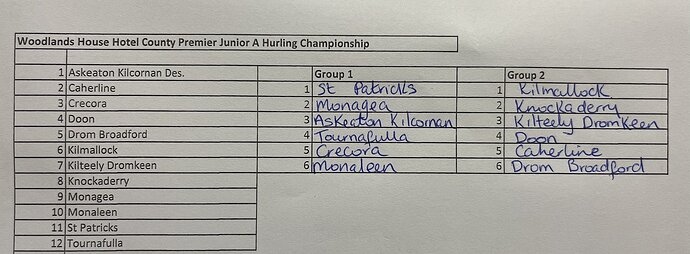 Woodlands House Hotel County Premier Junior A Hurling Championship
1 Askeaton Kilcornan Des. Group 1 Group 2
2 Caherline 1 St Patricks 1 Kilmallock
3 Crecora 2 Monagea 2 Knockaderry
4 Doon 3 Askeaton Kilcornan 3 Kilteely Dromkeen
5 Drom Broadford 4 Tournafulla 4 Doon
6 Kilmallock 5 Crecora 5 Caherline
7 Kilteely Dromkeen 6 Monaleen 6 Drom Broadford
8 Knockaderry
9 Monagea
10 Monaleen
11 St Patricks
12 Tournafulla